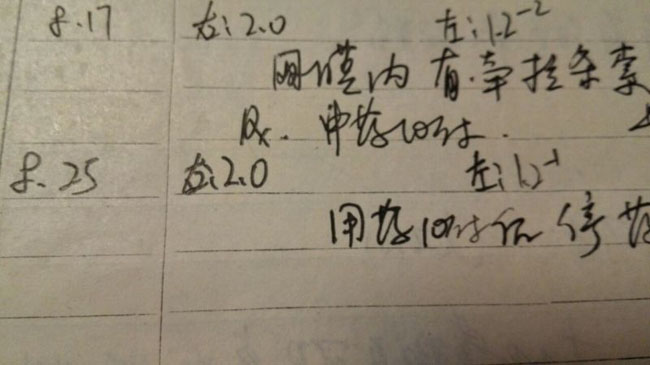 8.17 右:2.0 左:1.2⁻²
网膜内有牵拉条索
Rx. 中药10付.
8.25 右:2.0 左:1.2⁻¹
用药10付后停药